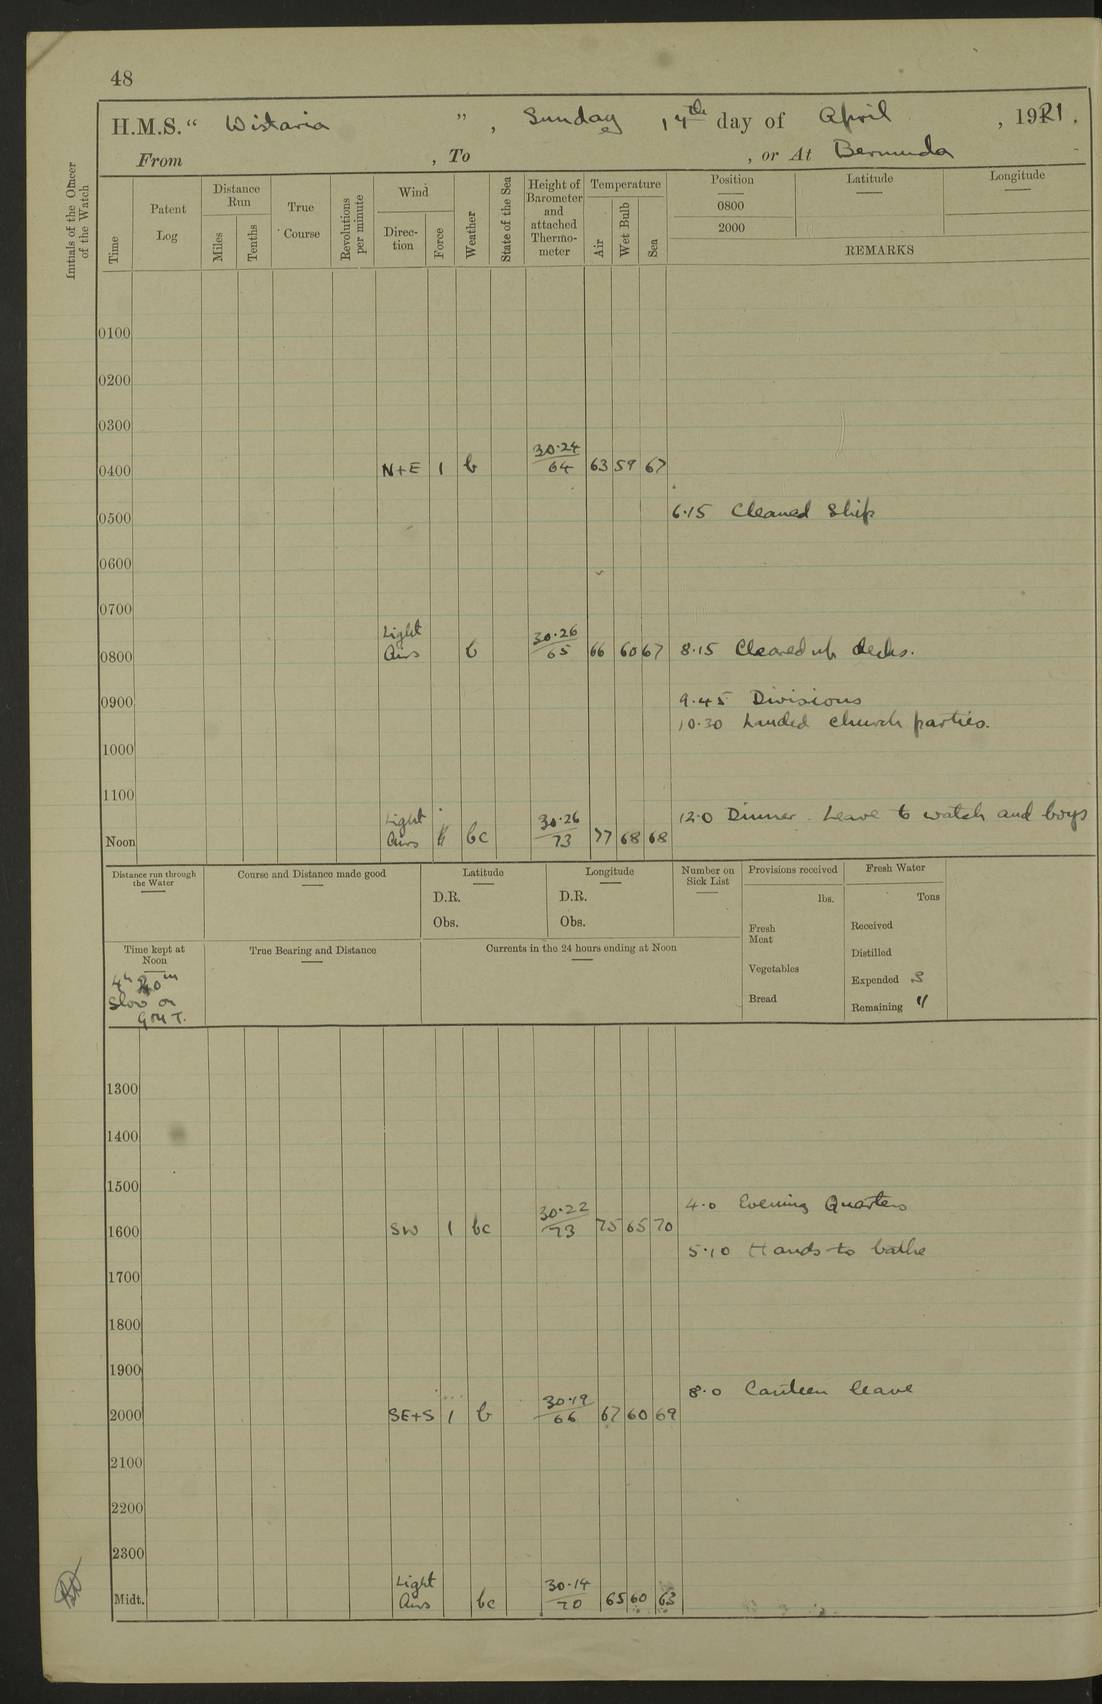 48
H.M.S. “ Wistaria ” , Sunday 17th day of April , 1921 .
From , To , or At Bermuda
Initials of the Officer of the Watch
Time
Patent Log
Distance Run
Miles
Tenths
True Course
Revolutions per minute
Wind
Direc-tion
Force
Weather
State of the Sea
Height of Barometer and attached Thermo-meter
Temperature
Air
Wet Bulb
Sea
Position Latitude Longitude
0800
2000
REMARKS
0100
0200
0300
0400 N+E 1 b 30.24/64 63 59 67
6.15 Cleaned Ship
0500
0600
0700
0800 Light Airs b 30.26/65 66 60 67 8.15 Cleared up decks.
0900 9.45 Divisions
10.30 Landed church parties.
1000
1100
12.0 Dinner. Leave to watch and boys
Noon Light Airs bc 30.26/73 77 68 68
Distance run through the Water
Course and Distance made good
Latitude
D.R.
Obs.
Longitude
D.R.
Obs.
Number on Sick List
Provisions received
lbs.
Fresh Meat
Vegetables
Bread
Fresh Water
Tons
Received
Distilled
Expended 3
Remaining 11
Time kept at Noon
4h 20m
Slow on
GMT.
True Bearing and Distance
Currents in the 24 hours ending at Noon
1300
1400
1500
4.0 Evening Quarters
1600 SW 1 bc 30.22/73 75 65 70
5.10 Hands to bathe
1700
1800
1900
8.0 Canteen leave
2000 SE+S 1 b 30.19/66 67 60 69
2100
2200
2300
Midt. Light Airs bc 30.14/70 65 60 63